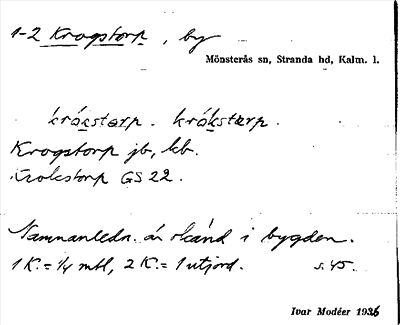 1-2 Krogstorp, by
Mönsterås sn, Stranda hd, Kalm. l.
krókstorp. krókstorp.
Krogstorp jb, kb.
Krokstorp GS 22.
Namnanledn. är okänd i bygden.
1 K. = 1/4 mtl, 2 K. = 1 utjord. s. 45.
Ivar Modéer 1936